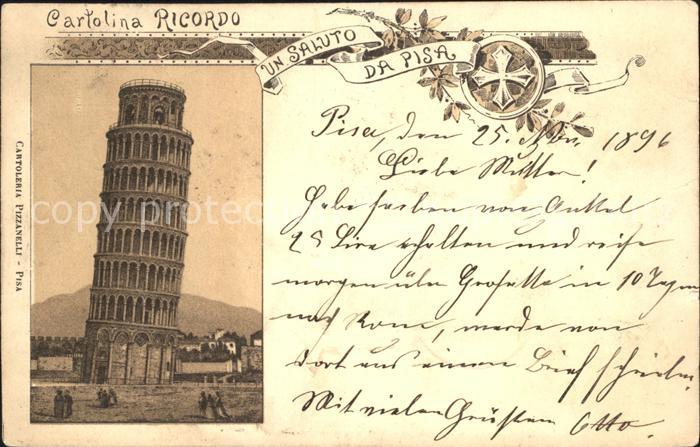 Cartolina RICORDO
UN SALUTO
DA PISA
CARTOLERIA PIZZANELLI - PISA
Pisa, den 25. 1896
Liebe Mutter!
Habe soeben von Onkel
25 Lire erhalten und reise
morgen über Grosetto in 10 Tagen
nach Rom, werde von
dort aus einen Brief schreiben.
Mit vielen Grüssen Otto.
copy protected